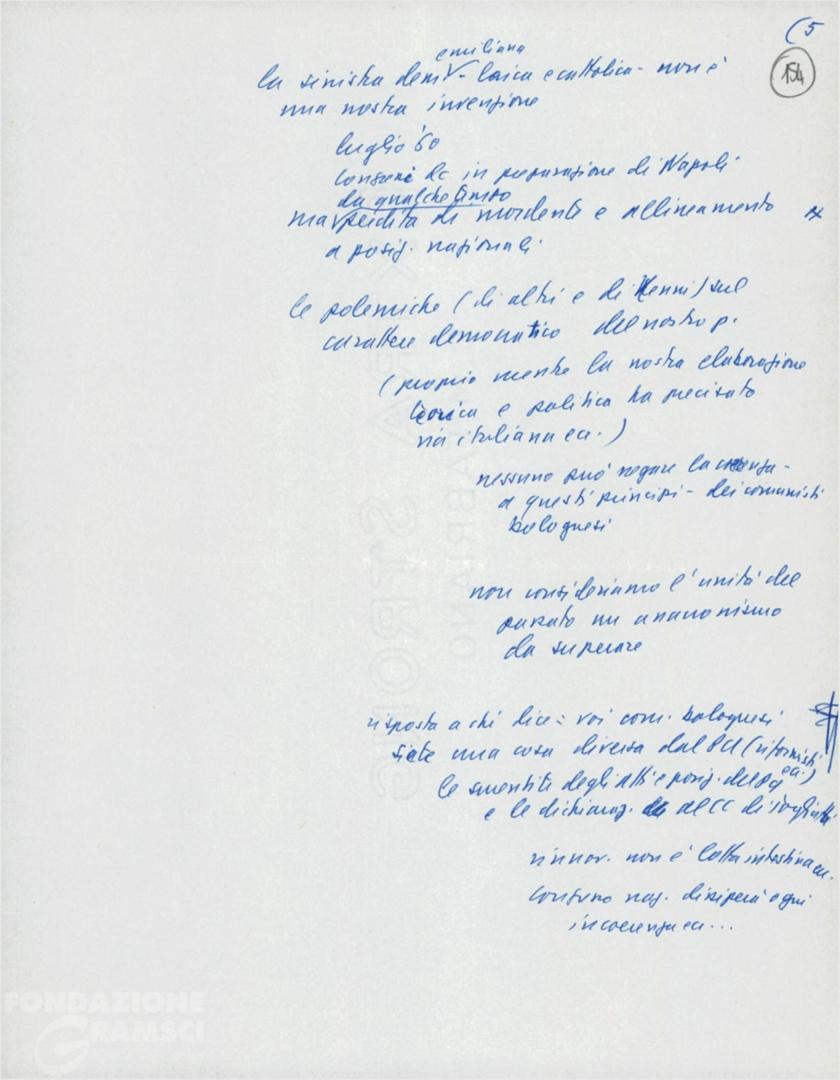 (5
154
emiliana
la sinistra dem. V - laica e cattolica - non è
una nostra invenzione
luglio '60
congressi dc in preparazione di Napoli
da qualche tempo
ma V perdita di mordente e allineamento x
a posiz. nazionali
le polemiche (di altri e di Nenni) sul
carattere democratico del nostro p.
(proprio mentre la nostra elaborazione
teorica e politica ha precisato
via italiana ecc.)
nessuno può negare la coerenza -
a questi principi - dei comunisti
bolognesi
non consideriamo l'unità del
passato un anacronismo
da superare
risposta a chi dice: voi com. bolognesi
siete una cosa diversa dal PCI (riformisti
ecc.)
le smentite degli atti e posiz. del Pci
e le dichiaraz. al CC di Togliatti
rinnov. non è lotta intestina ecc.
congresso naz. dissiperà ogni
incoerenza ecc...
FABRIANO
FONDAZIONE
GRAMSCI